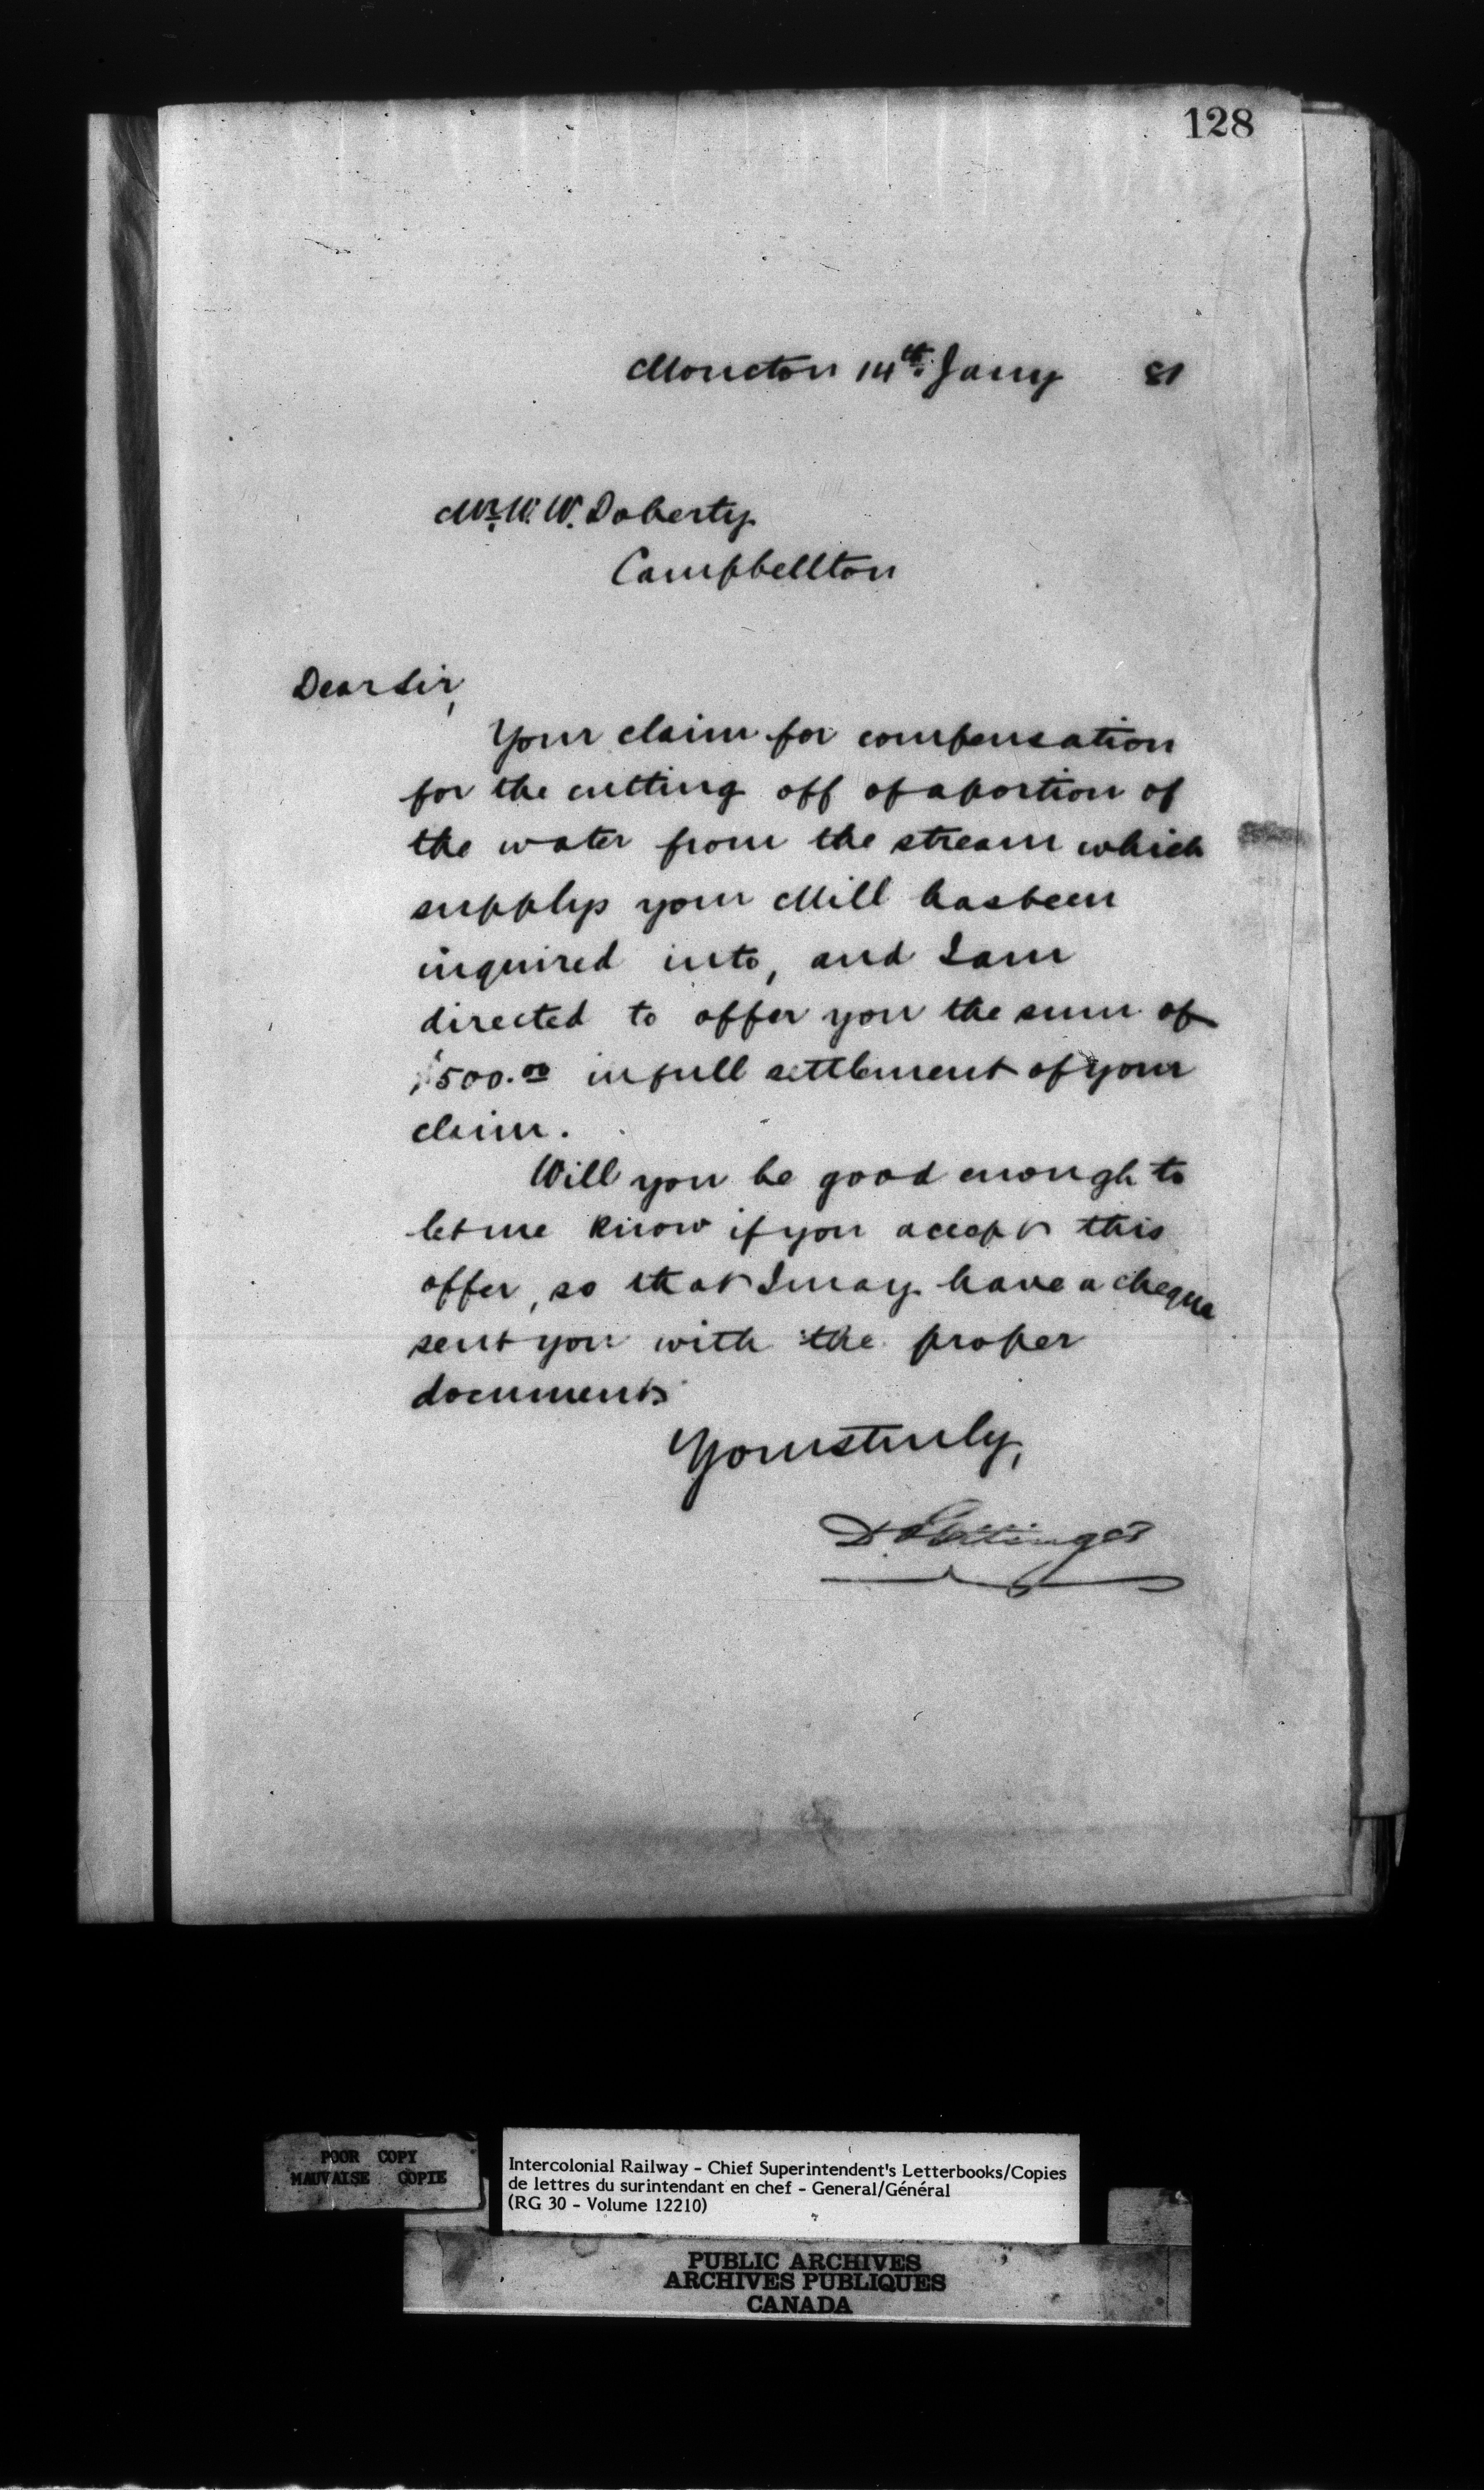 128
Moncton 14th Jany 81
Mr. W. W. Doherty
Campbellton
Dear Sir,
Your claim for compensation
for the cutting off of a portion of
the water from the stream which
supplys your Mill has been
inquired into, and I am
directed to offer you the sum of
$500.00 in full settlement of your
claim.
Will you be good enough to
let me know if you accept this
offer, so that I may have a cheque
sent you with the proper
documents
Yours truly,
D Pottinger
POOR COPY
MAUVAISE COPIE
Intercolonial Railway - Chief Superintendent's Letterbooks/Copies
de lettres du surintendant en chef - General/Général
(RG 30 - Volume 12210)
PUBLIC ARCHIVES
ARCHIVES PUBLIQUES
CANADA